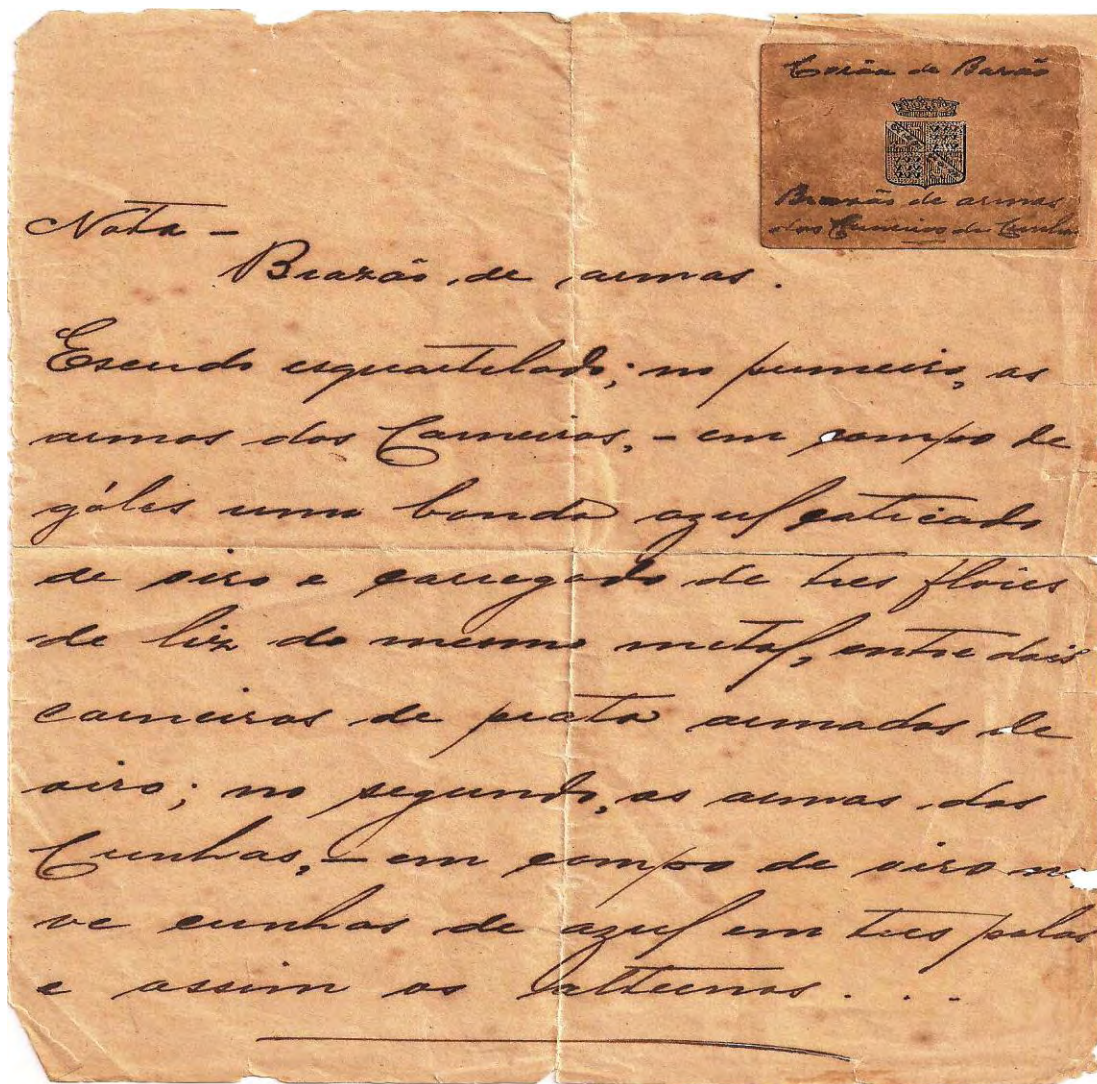 Corôa de Barão
Brazão de armas
dos Carneiros da Cunha
Nota -
Brazão de armas.
Escudo esquartelado; no primeiro, as
armas dos Carneiros, - em campo de
góles uma banda azul coticado
de oiro e carregado de tres flores
de liz do mesmo metal, entre dois
carneiros de prata armados de
oiro; no segundo, as armas dos
Cunhas, - em campo de oiro no
ve cunhas de azul em tres palas
e assim os alternos...